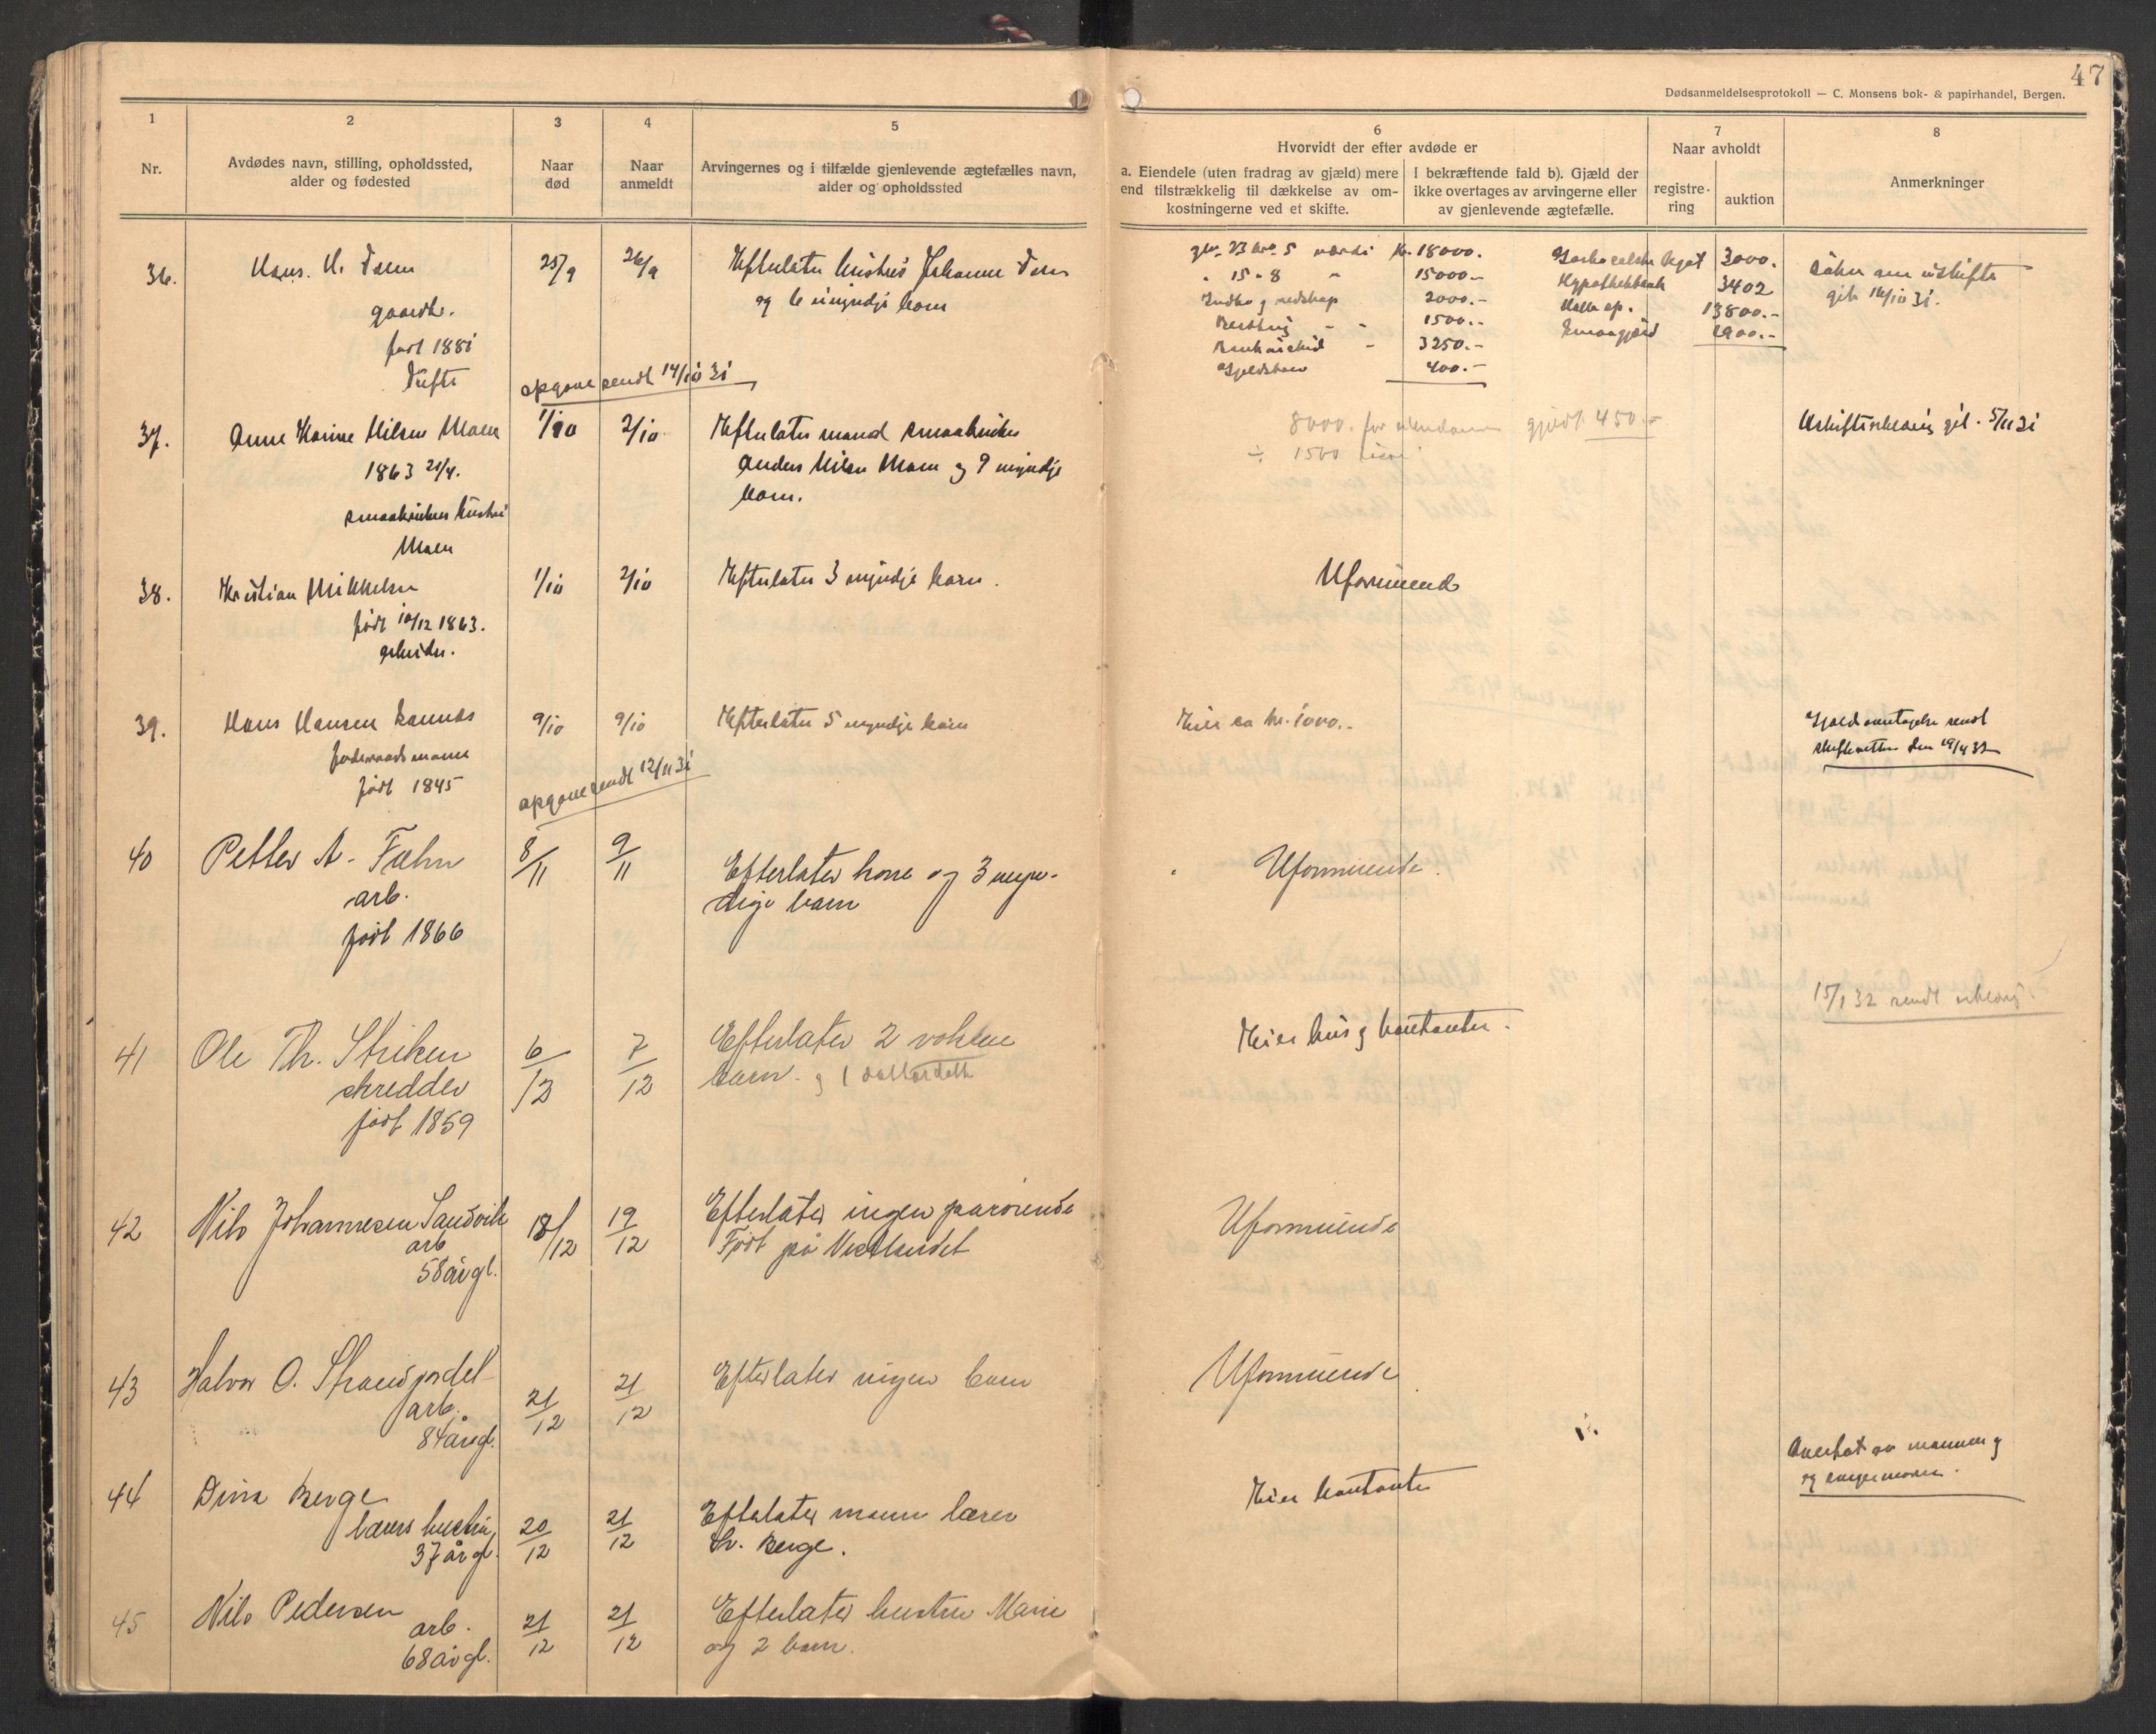 47
Dødsanmeldelsesprotokoll — C. Monsens bok- & papirhandel, Bergen.
1
Nr.
2
Avdødes navn, stilling, opholdssted,
alder og fødested
3
Naar
død
4
Naar
anmeldt
5
Arvingernes og i tilfælde gjenlevende ægtefælles navn,
alder og opholdssted
6
Hvorvidt der efter avdøde er
a. Eiendele (uten fradrag av gjæld) mere
end tilstrækkelig til dækkelse av om-
kostningerne ved et skifte.
I bekræftende fald b). Gjæld der
ikke overtages av arvingerne eller
av gjenlevende ægtefælle.
7
Naar avholdt
registre-
ring
auktion
8
Anmerkninger
36.
Hans. H.
gaardbr.
født 1881
Tufte
25/9
26/9
Efterlater hustru Johanne
og 6 umyndje barn
opgave sendt 14/10 31
gnr. 23 bnr. 5 værdi kr. 18000.
" 15 - 8 " 15000.-
redskap 2000.-
1500.-
3250.-
400.-
3000.
Hypothekbank 3402
13800.-
Smaagjæld 2900.-
Søker om uskifte
git 16/10 31.
37.
Anne Karine Nilsen Moen
1863 21/4.
smaabrukers hustru
Moen
1/10
2/10
Efterlater mand smaabruker
Anders Nilsen Moen og 9 myndje
barn.
8000. for
÷ 1500
gjæld. 450.-
Uskifteerklæring git. 5/11 31
38.
Kristian Mikkelsen
født 10/12 1863.
arbeider.
1/10
2/10
Efterlater 3 myndje barn.
Uformuende
39.
Hans Hansen
føderaadsmann
født 1845
9/10
9/10
Efterlater 5 myndje barn
opgave sendt 12/11 31
Eier ca kr. 1000.-
Gjældsovertagelse sendt
skifteretten den 19/4 32
40
Petter A. Fæhn
arb.
født 1866
8/11
9/11
Efterlater kone og 3 myn-
dige barn
Uformuende.
41
Ole Th. Striken
skredder
født 1859
6/12
7/12
Efterlater 2 voksne
barn. og 1 datterdatter
Eier hus og kontanter.
15/1 32 sendt
42
Nils Johannesen Sandvik
arb
58 år gl.
18/12
19/12
Efterlater ingen pårørende
Født på Vestlandet
Uformuende
43
Halvor O. Strandjordet
arb.
84 år gl.
21/12
21/12
Efterlater ingen barn
Uformuende
44
Dina Berge
lærers hustru,
37 år gl.
20/12
21/12
Efterlater mann lærer
Berge.
Eier kontanter
Overtat av mannen og
og svigermoren.
45
Nils Pedersen
arb.
68 år gl.
21/12
21/12
Efterlater hustru Marie
og 2 barn.